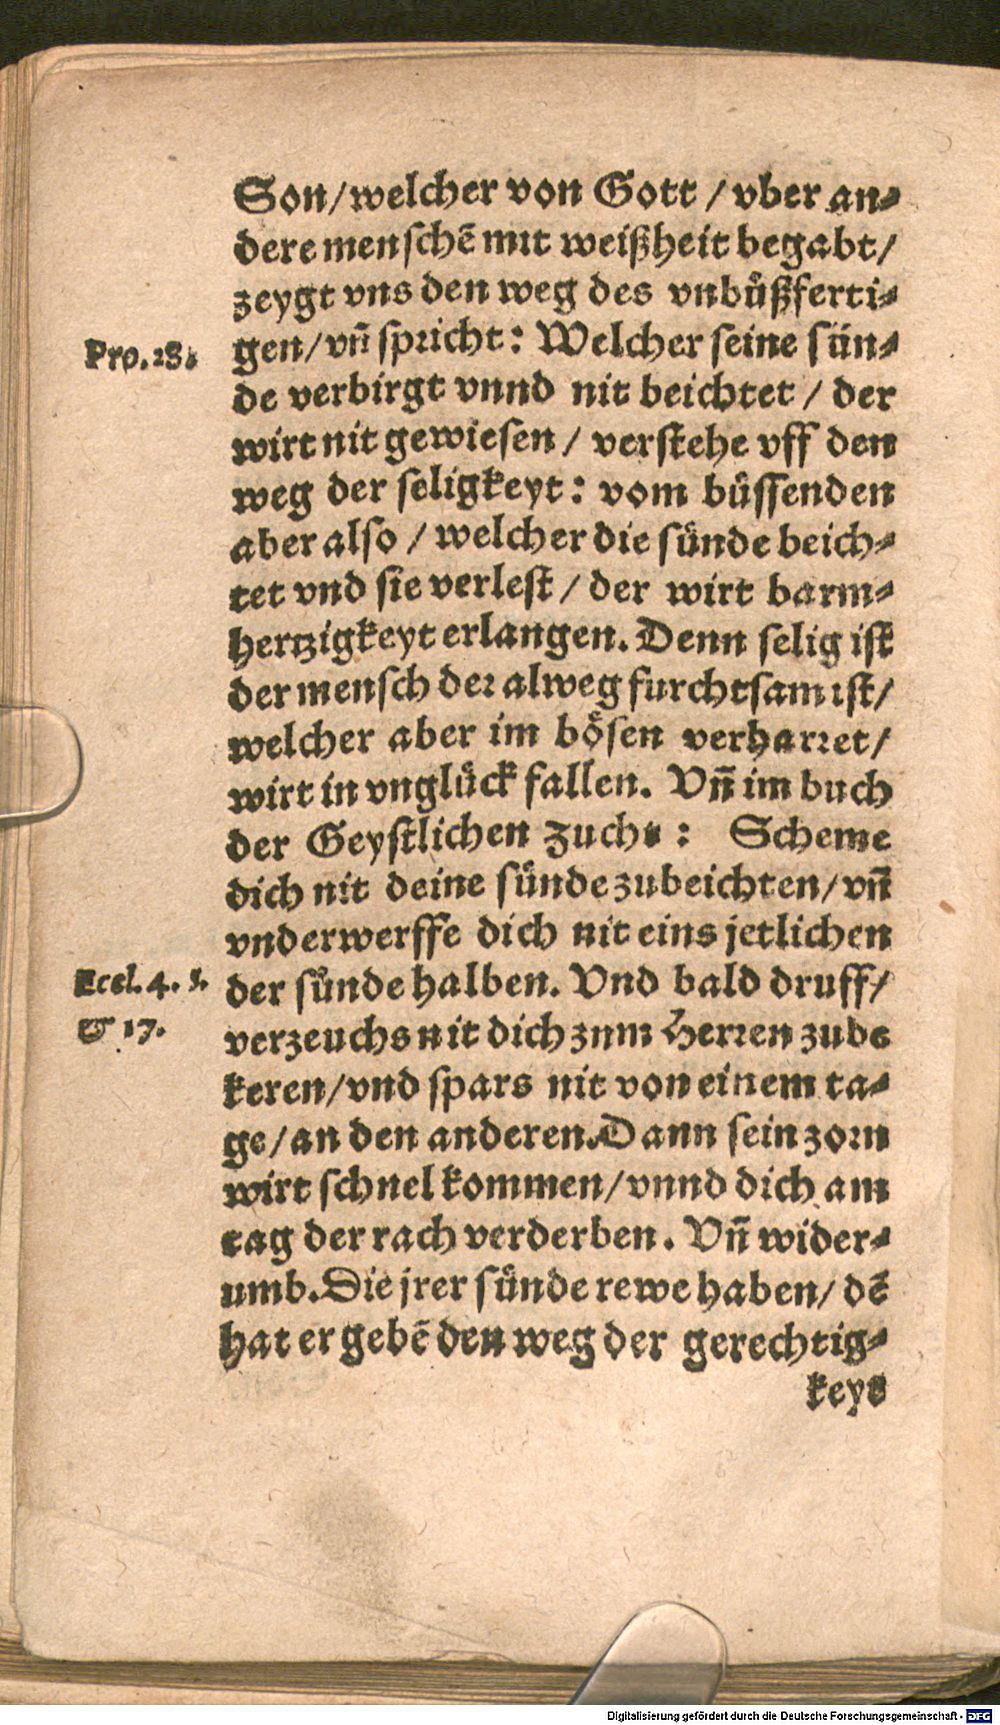 Son/welcher von Gott / vber an⸗
dere menschē mit weißheit begabt/
zeygt vns den weg des vnbuͤßferti⸗
Pro. 28. gen/vn̄ spricht: Welcher seine suͤn⸗
de verbirgt vnnd nit beichtet / der
wirt nit gewiesen / verstehe vff den
weg der seligkeyt: vom buͤssenden
aber also / welcher die suͤnde beich⸗
tet vnd sie verlest / der wirt barm⸗
hertzigkeyt erlangen. Denn selig ist
der mensch der alweg furchtsam ist/
welcher aber im boͤsen verharret/
wirt in vngluͤck fallen. Vn̄ im buch
der Geystlichen Zucht : Scheme
dich nit deine suͤnde zubeichten/ vn̄
vnderwerffe dich nit eins jetlichen
Eccl. 4. 5. der suͤnde halben. Vnd bald druff/
& 17. verzeuchs nit dich zum Herren zube
keren/vnd spars nit von einem ta⸗
ge/an den anderen. Dann sein zorn
wirt schnel kommen/vnnd dich am
tag der rach verderben. Vn̄ wider⸗
umb. Die jrer suͤnde rewe haben/ dē
hat er gebē den weg der gerechtig⸗
keyt
Digitalisierung gefördert durch die Deutsche Forschungsgemeinschaft - DFG